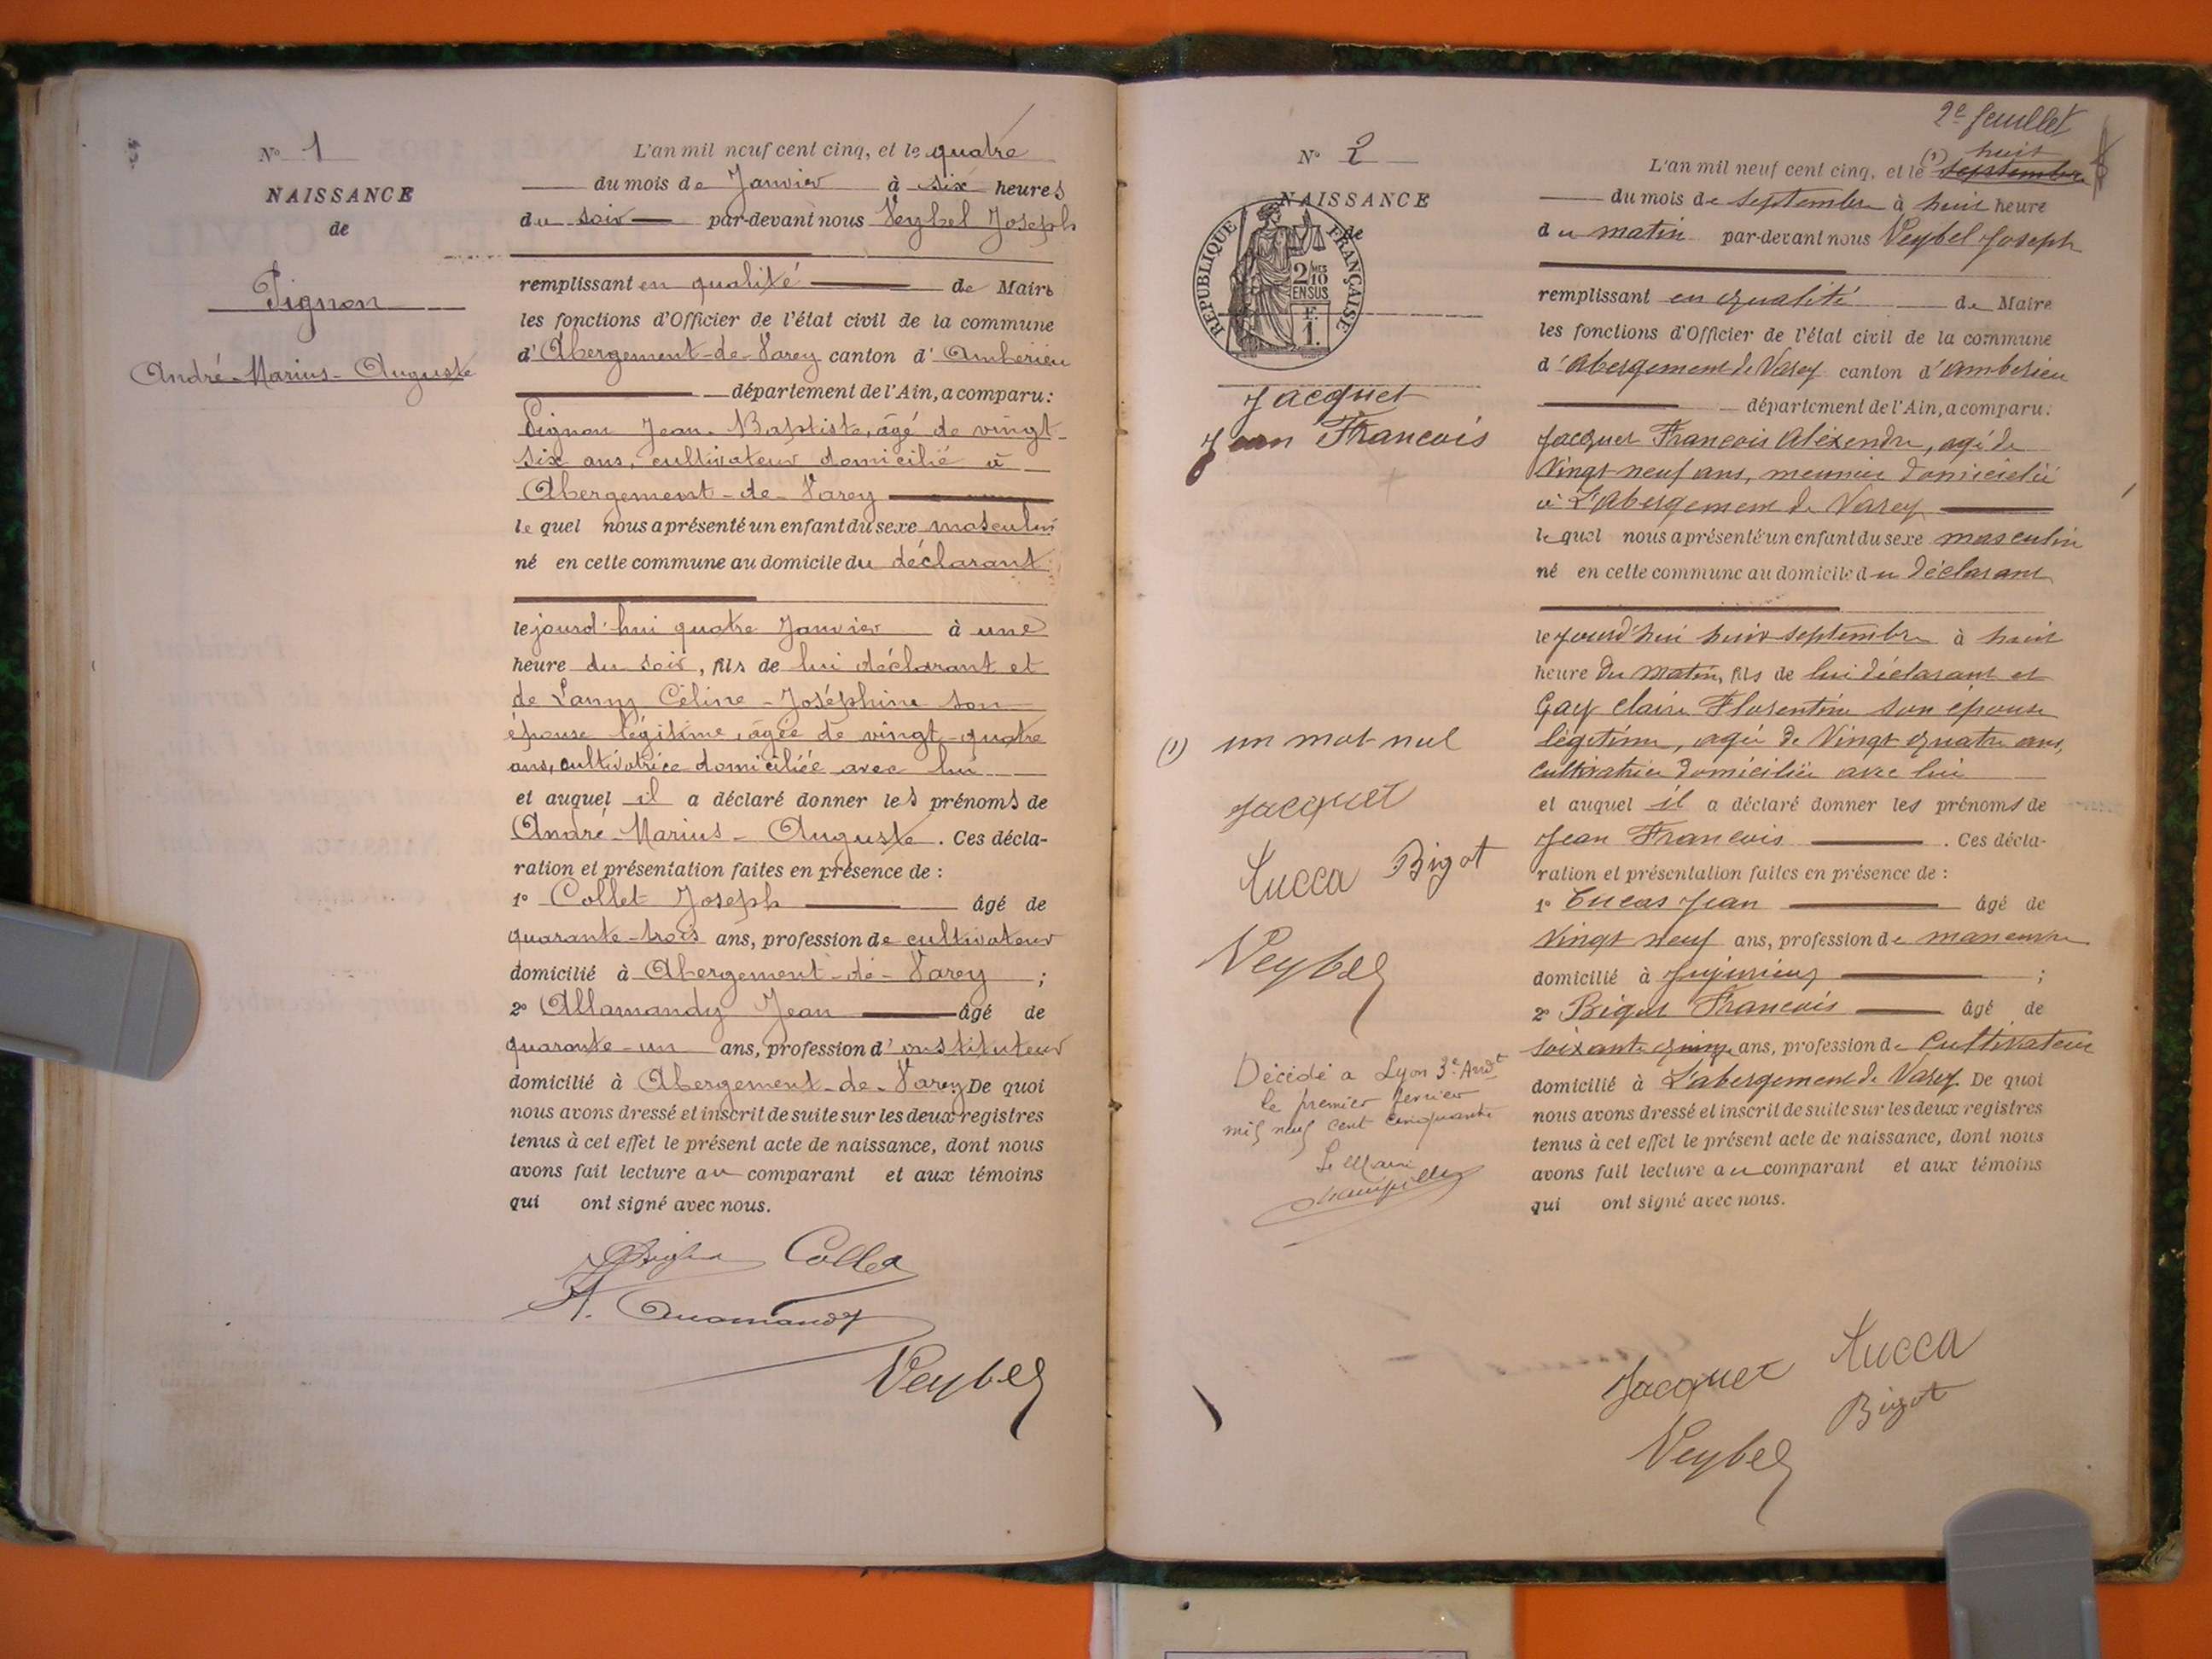 N° 1
NAISSANCE
de
Pignon
André-Marius-Auguste
L'an mil neuf cent cinq, et le quatre
du mois de Janvier à six heures
du soir par-devant nous Veybel Joseph
remplissant en qualité de Maire
les fonctions d'Officier de l'état civil de la commune
d'Abergement-de-Varey canton d'Ambérieu
département de l'Ain, a comparu:
Pignon Jean-Baptiste, âgé de vingt-
six ans, cultivateur domicilié à
Abergement-de-Varey
le quel nous a présenté un enfant du sexe masculin
né en cette commune au domicile du déclarant
le jourd'hui quatre Janvier à une
heure du soir, fils de lui déclarant et
de Lanny Céline-Joséphine son
épouse légitime, âgée de vingt-quatre
ans, cultivatrice domiciliée avec lui
et auquel il a déclaré donner les prénoms de
André-Marius-Auguste. Ces décla-
ration et présentation faites en présence de :
1° Collet Joseph âgé de
quarante-trois ans, profession de cultivateur
domicilié à Abergement-de-Varey ;
2° Allamandy Jean âgé de
quarante-un ans, profession d'instituteur
domicilié à Abergement-de-Varey De quoi
nous avons dressé et inscrit de suite sur les deux registres
tenus à cet effet le présent acte de naissance, dont nous
avons fait lecture au comparant et aux témoins
qui ont signé avec nous.
Collet
Veybel
2e feuillet
N° 2
NAISSANCE
de
REPUBLIQUE FRANÇAISE
2/10
EN SUS
F.
1.
Jacquet
Jean Francois
(1) un mot nul
Jacquet
Lucca Bigot
Veybel
Décédé a Lyon 3e Arrdt
le premier fevrier
mil neuf cent cinquante
Le Maire
(1) huit
L'an mil neuf cent cinq, et le septembre
du mois de septembre à huit heure
du matin par-devant nous Veybel Joseph
remplissant en qualité de Maire
les fonctions d'Officier de l'état civil de la commune
d'abergement de Varey canton d'amberieu
département de l'Ain, a comparu:
Jacquet Francois Alexendre, agé de
Vingt neuf ans, meunier domicielié
à L'Abergement de Varey
le quel nous a présenté un enfant du sexe masculin
né en cette commune au domicile du déclarant
le jourd'hui huit septembre à huit
heure du matin, fils de lui déclarant et
Gay Claire Florentine son épouse
légitime, agée de Vingt quatre ans,
cultivatrice domiciliée avec lui
et auquel il a déclaré donner les prénoms de
Jean Francois. Ces décla-
ration et présentation faites en présence de :
1° Lucas Jean âgé de
Vingt neuf ans, profession de manœuvre
domicilié à Jujurieux ;
2° Bigot Francois âgé de
soixante quinze ans, profession de Cultivateur
domicilié à L'abergement de Varey. De quoi
nous avons dressé et inscrit de suite sur les deux registres
tenus à cet effet le présent acte de naissance, dont nous
avons fait lecture au comparant et aux témoins
qui ont signé avec nous.
Jacquet Lucca
Bigot
Veybel